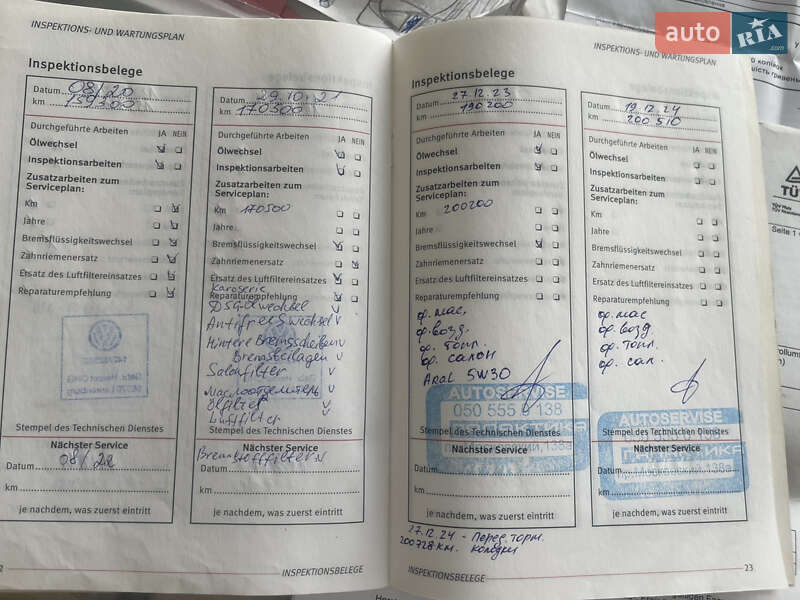 INSPEKTIONS- UND WARTUNGSPLAN
Inspektionsbelege
Datum 08/20
km 159300
Durchgeführte Arbeiten JA NEIN
Ölwechsel
Inspektionsarbeiten
Zusatzarbeiten zum
Serviceplan:
Km
Jahre
Bremsflüssigkeitswechsel
Zahnriemenersatz
Ersatz des Luftfiltereinsatzes
Reparaturempfehlung
Stempel des Technischen Dienstes
Nächster Service
Datum 08/22
km
je nachdem, was zuerst eintritt
Datum 29.10.21
km 170300
Durchgeführte Arbeiten JA NEIN
Ölwechsel
Inspektionsarbeiten
Zusatzarbeiten zum
Serviceplan:
Km 170500
Jahre
Bremsflüssigkeitswechsel
Zahnriemenersatz
Ersatz des Luftfiltereinsatzes
Karoserie
Reparaturempfehlung
DSG-Ölwechsel
Hintere Bremsscheiben
Bremsbeilagen
Salonfilter
Маслоотделитель
Ölfilter
Luftfilter
Stempel des Technischen Dienstes
Nächster Service
Datum
km
je nachdem, was zuerst eintritt
INSPEKTIONSBELEGE
INSPEKTIONS- UND WARTUNGSPLAN
Inspektionsbelege
Datum 27.12.23
km 190200
Durchgeführte Arbeiten JA NEIN
Ölwechsel
Inspektionsarbeiten
Zusatzarbeiten zum
Serviceplan:
Km 200200
Jahre
Bremsflüssigkeitswechsel
Zahnriemenersatz
Ersatz des Luftfiltereinsatzes
Reparaturempfehlung
ф. мас,
ф. возд.
ф. топл.
ф. салон
Aral 5W30
AUTOSERVISE
050 555 138
Stempel des Technischen Dienstes
Nächster Service
Datum
km
je nachdem, was zuerst eintritt
27.12.24 - Перед. торм.
200728 км. колодки
INSPEKTIONSBELEGE
Datum 19.12.24
km 200510
Durchgeführte Arbeiten JA NEIN
Ölwechsel
Inspektionsarbeiten
Zusatzarbeiten zum
Serviceplan:
Km
Jahre
Bremsflüssigkeitswechsel
Zahnriemenersatz
Ersatz des Luftfiltereinsatzes
Reparaturempfehlung
ф. мас
ф. возд
ф. топл.
ф. сал.
AUTOSERVISE
Stempel des Technischen Dienstes
Nächster Service
Datum
km
je nachdem, was zuerst eintritt
23
auto RIA .com
TÜV
Seite 1